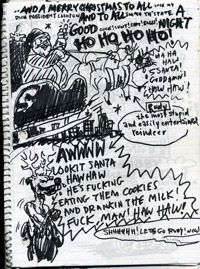 ...AND A MERRY CHRISTMAS TO ALL
PRESIDENT CLINTON AND TO ALL
A GOOD NIGHT
HO HO HO HO!
HA HA
HAW
SANTA!
HAW HAW!
Rudy
the most stupid
and easily entertained
reindeer
AWWWW
LOOKIT SANTA
HAW HAW
HE'S FUCKING
EATING THEM COOKIES
AND DRANKIN THE MILK!
FUCK, MAN! HAW HAW!
LETS GO RUDY!